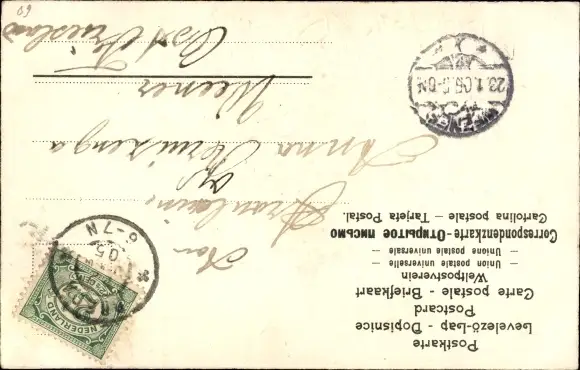 Postkarte
Levelező-Lap - Dopisnice
Postcard
Carte postale - Briefkaart
Weltpostverein
– Union postale universelle –
– Unione postale universale –
Correspondenzkarte - Открытое письмо
Cartolina postale – Tarjeta Postal.
NEDERLAND
6-7N
05
Fräulein
Anna
Weener
Ost Friesland
23.1.05.5-6N
WEENER
69